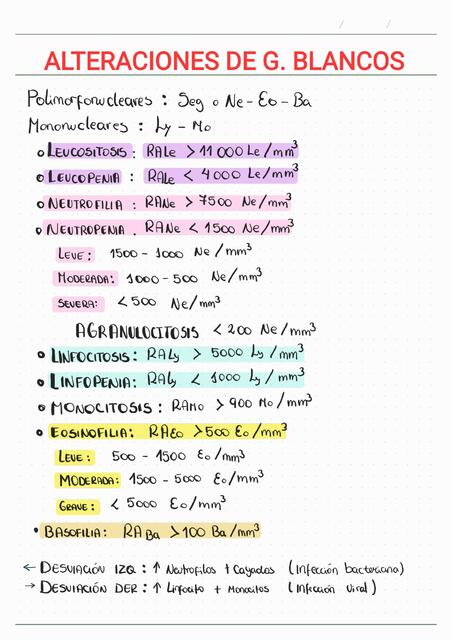 / /
ALTERACIONES DE G. BLANCOS
Polimorfonucleares : Seg o Ne - Eo - Ba
Mononucleares : Ly - Mo
LEUCOSITOSIS : RALe > 11 000 Le/mm³
LEUCOPENIA : RALe < 4 000 Le/mm³
NEUTROFILIA : RANe > 7500 Ne/mm³
NEUTROPENIA . RANe < 1500 Ne/mm³
LEVE: 1500 - 1000 Ne/mm³
MODERADA: 1000 - 500 Ne/mm³
SEVERA: < 500 Ne/mm³
AGRANULOCITOSIS < 200 Ne/mm³
LINFOCITOSIS: RALy > 5000 Ly/mm³
LINFOPENIA: RALy < 1000 Ly/mm³
MONOCITOSIS : RAMo > 900 Mo/mm³
EOSINOFILIA: RAEo > 500 Eo/mm³
LEVE: 500 - 1500 Eo/mm³
MODERADA: 1500 - 5000 Eo/mm³
GRAVE: < 5000 Eo/mm³
BASOFILIA: RABa > 100 Ba/mm³
← DESVIACIÓN IZQ : ↑ Neutrofilos + Cayados (Infección bacteriana)
→ DESVIACIÓN DER : ↑ Linfocito + Monocitos (Infección viral)